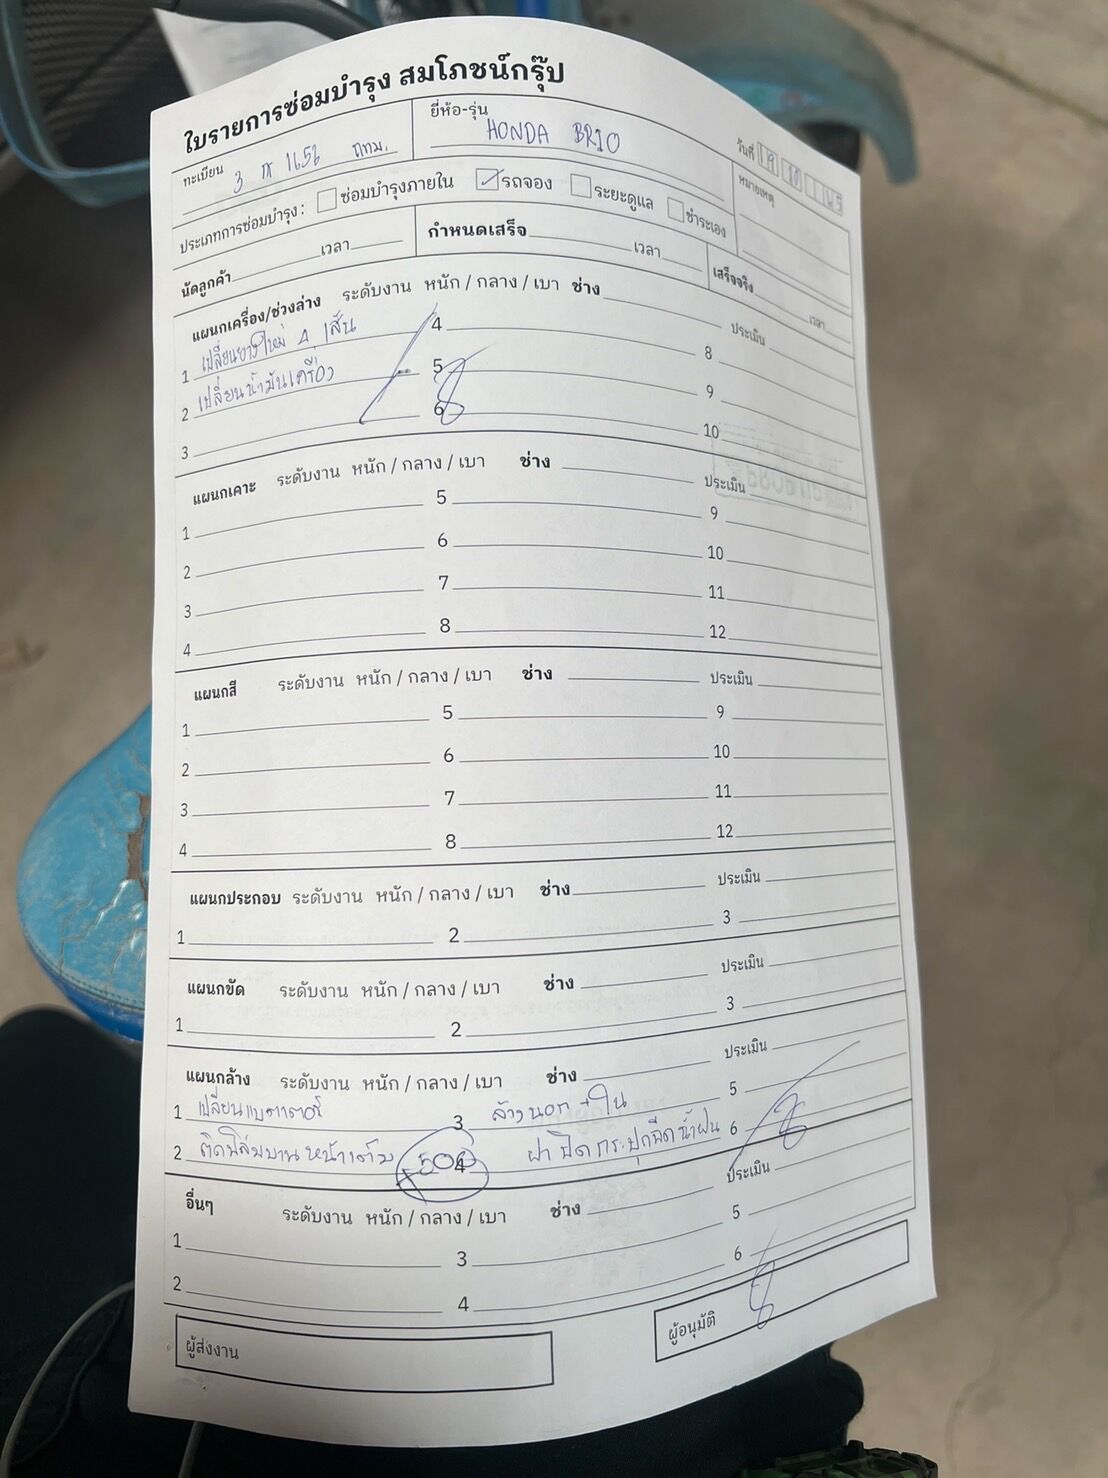 ใบรายการซ่อมบำรุง สมโภชน์กรุ๊ป
ทะเบียน 3 กท.
ยี่ห้อ-รุ่น HONDA BRIO
วันที่ 19
หมายเหตุ
ประเภทการซ่อมบำรุง : ซ่อมบำรุงภายใน รถจอง ระยะดูแล ชำระเอง
นัดลูกค้า เวลา กำหนดเสร็จ เวลา เสร็จจริง เวลา
แผนกเครื่อง/ช่วงล่าง ระดับงาน หนัก / กลาง / เบา ช่าง ประเมิน
1 เปลี่ยนยางใหม่ 4 เส้น 4 8
2 เปลี่ยนน้ำมันเครื่อง 5 9
3 6 10
แผนกเคาะ ระดับงาน หนัก / กลาง / เบา ช่าง ประเมิน
1 5 9
2 6 10
3 7 11
4 8 12
แผนกสี ระดับงาน หนัก / กลาง / เบา ช่าง ประเมิน
1 5 9
2 6 10
3 7 11
4 8 12
แผนกประกอบ ระดับงาน หนัก / กลาง / เบา ช่าง ประเมิน
1 2 3
แผนกขัด ระดับงาน หนัก / กลาง / เบา ช่าง ประเมิน
1 2 3
แผนกล้าง ระดับงาน หนัก / กลาง / เบา ช่าง ประเมิน
1 เปลี่ยนแบตเตอรี่ 3 ล้างนอก + ใน 5
2 ติดฟิล์มบานหน้าเต็ม 500 4 ฝาปิดกระปุกฉีดน้ำฝน 6
อื่นๆ ระดับงาน หนัก / กลาง / เบา ช่าง ประเมิน
1 3 5
2 4 6
ผู้ส่งงาน ผู้อนุมัติ